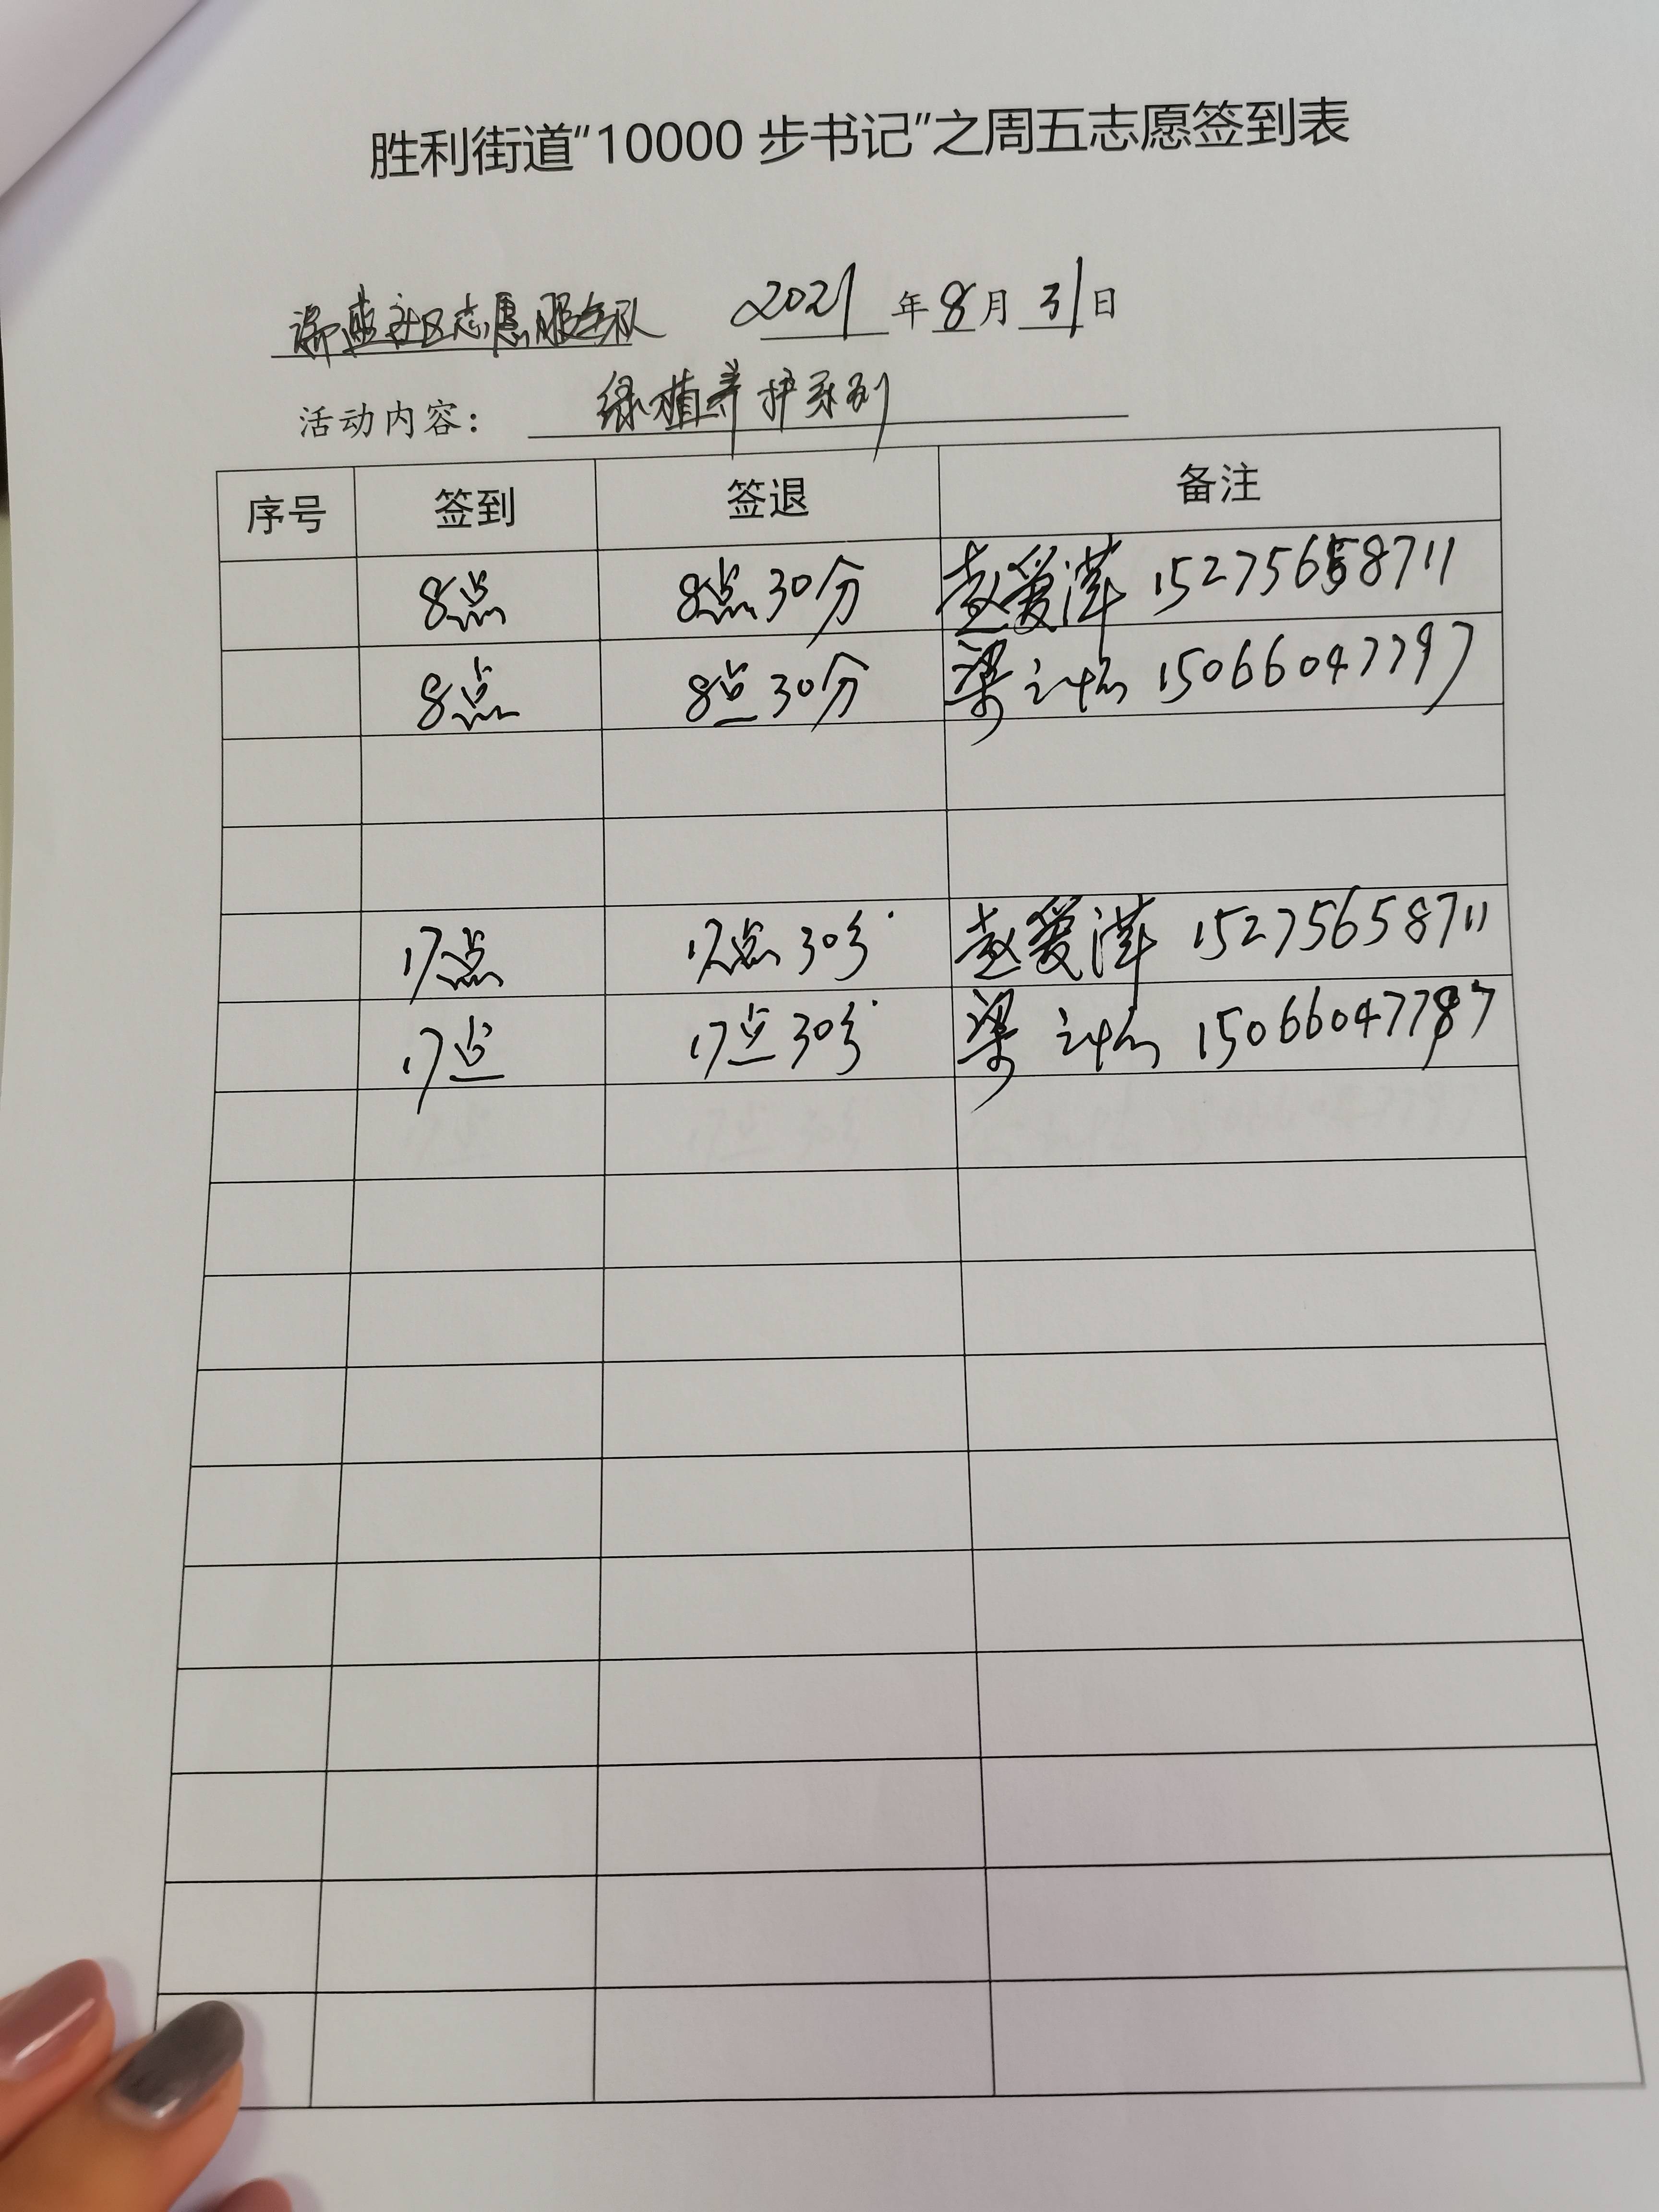 胜利街道“10000 步书记”之周五志愿签到表
社区志愿服务队 2021年8月31日
活动内容： 绿植养护系列
序号 签到 签退 备注
8点 8点30分 赵爱萍 15275658711
8点 8点30分 梁 15066047797
17点 17点30分 赵爱萍 15275658711
17点 17点30分 梁 150660477